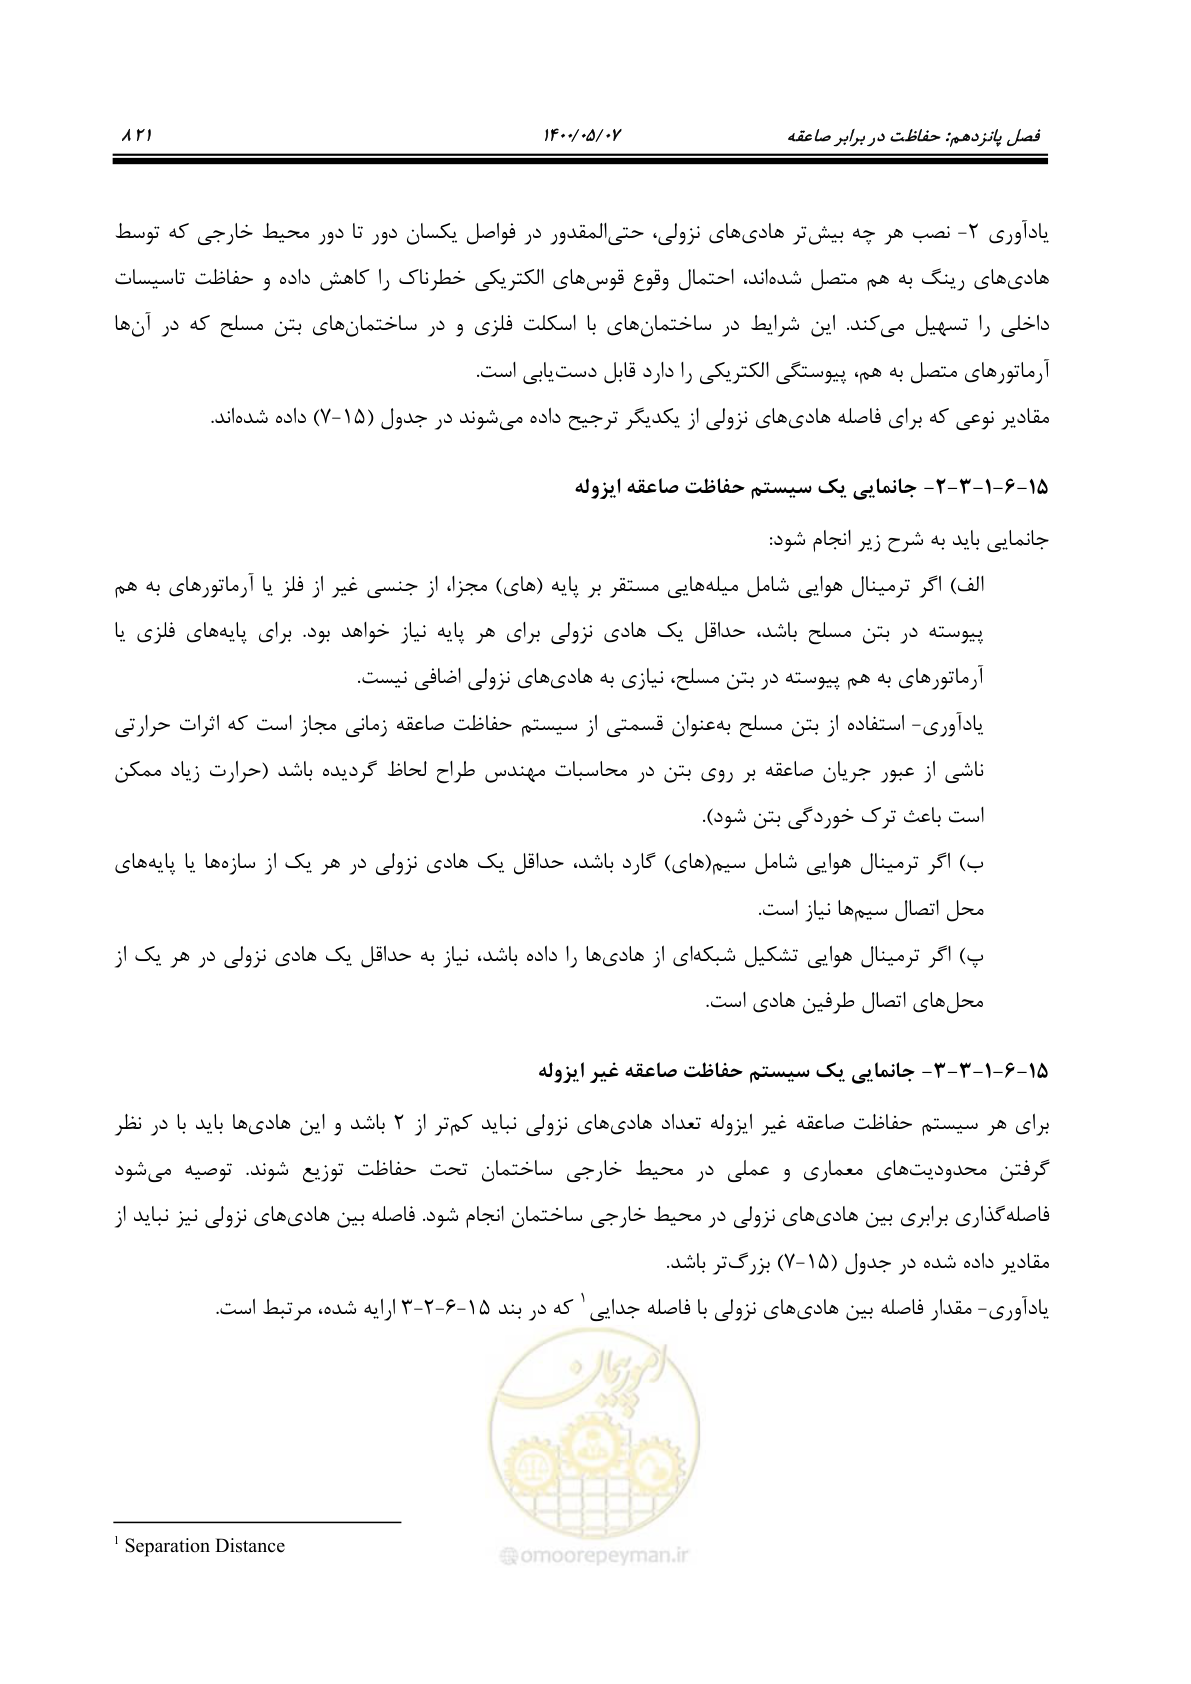 فصل پانزدهم: حفاظت در برابر صاعقه ۱۴۰۰/۰۵/۰۷ ۸۲۱
یادآوری ۲- نصب هر چه بیش‌تر هادی‌های نزولی، حتی‌المقدور در فواصل یکسان دور تا دور محیط خارجی که توسط
هادی‌های رینگ به هم متصل شده‌اند، احتمال وقوع قوس‌های الکتریکی خطرناک را کاهش داده و حفاظت تاسیسات
داخلی را تسهیل می‌کند. این شرایط در ساختمان‌های با اسکلت فلزی و در ساختمان‌های بتن مسلح که در آن‌ها
آرماتورهای متصل به هم، پیوستگی الکتریکی را دارد قابل دست‌یابی است.
مقادیر نوعی که برای فاصله هادی‌های نزولی از یکدیگر ترجیح داده می‌شوند در جدول (۱۵-۷) داده شده‌اند.
۱۵-۶-۱-۳-۲- جانمایی یک سیستم حفاظت صاعقه ایزوله
جانمایی باید به شرح زیر انجام شود:
الف) اگر ترمینال هوایی شامل میله‌هایی مستقر بر پایه (های) مجزا، از جنسی غیر از فلز یا آرماتورهای به هم
پیوسته در بتن مسلح باشد، حداقل یک هادی نزولی برای هر پایه نیاز خواهد بود. برای پایه‌های فلزی یا
آرماتورهای به هم پیوسته در بتن مسلح، نیازی به هادی‌های نزولی اضافی نیست.
یادآوری- استفاده از بتن مسلح به‌عنوان قسمتی از سیستم حفاظت صاعقه زمانی مجاز است که اثرات حرارتی
ناشی از عبور جریان صاعقه بر روی بتن در محاسبات مهندس طراح لحاظ گردیده باشد (حرارت زیاد ممکن
است باعث ترک خوردگی بتن شود).
ب) اگر ترمینال هوایی شامل سیم(های) گارد باشد، حداقل یک هادی نزولی در هر یک از سازه‌ها یا پایه‌های
محل اتصال سیم‌ها نیاز است.
پ) اگر ترمینال هوایی تشکیل شبکه‌ای از هادی‌ها را داده باشد، نیاز به حداقل یک هادی نزولی در هر یک از
محل‌های اتصال طرفین هادی است.
۱۵-۶-۱-۳-۳- جانمایی یک سیستم حفاظت صاعقه غیر ایزوله
برای هر سیستم حفاظت صاعقه غیر ایزوله تعداد هادی‌های نزولی نباید کم‌تر از ۲ باشد و این هادی‌ها باید با در نظر
گرفتن محدودیت‌های معماری و عملی در محیط خارجی ساختمان تحت حفاظت توزیع شوند. توصیه می‌شود
فاصله‌گذاری برابری بین هادی‌های نزولی در محیط خارجی ساختمان انجام شود. فاصله بین هادی‌های نزولی نیز نباید از
مقادیر داده شده در جدول (۱۵-۷) بزرگ‌تر باشد.
یادآوری- مقدار فاصله بین هادی‌های نزولی با فاصله جدایی۱ که در بند ۱۵-۶-۲-۳ ارایه شده، مرتبط است.
امور پیمان
1 Separation Distance
@omoorepeyman.ir